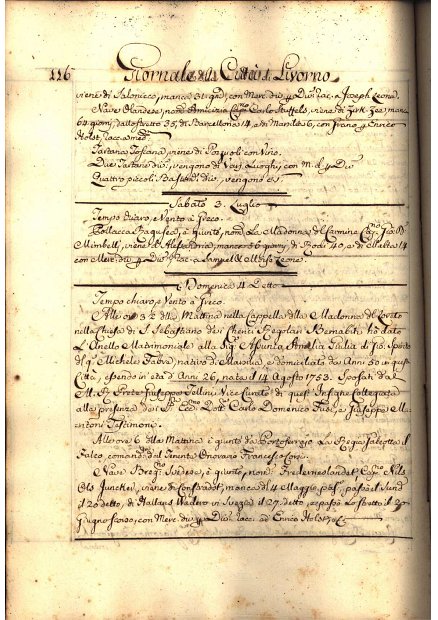 116 Giornale della Città di Livorno
viene di Salonicco, manca 31 gni, con Merc. div.
Nave Olandese, nomta Amicizia Capno Carlo Stuffels, viene di
64 giorni, dallo stretto 35, di Barcellona 14, e di Marsilia 6, con
Holst
Tartana Toscana, viene di Pozzuoli con Vino.
Due Tartane div. vengono di Varj Luoghi, con M. d.
Quattro piccoli Bastimti div. vengono
Sabato 3. Luglio
Tempo chiaro, Vento a Greco.
Pollacca Ragusea, è giunto, nomta La Madonna del Carmine Capno
Mimbelli, viene di Alessandria, manca 56 giorni, di Rodi 40, e di Malta 14
con Mert. div. a Samuel e Leone.
Domenica 4 Detto
Tempo chiaro, e Vento a Greco.
All'ore 3½ della Mattina nella Cappella della Madonna di Loreto
nella Chiesa di S. Sebastiano dei Cherici Regolari Bernabiti ho dato
L'Anello Matrimoniale alla Sigra Assunta Amalia Giulia
del qm Michele Fabri nativo di Majorca e domiciliato da Anni 50 in questa
Città, essendo in età di Anni 26, nata il 14 Agosto 1753. Sposati dal
M. R. Prete Giuseppe Tellini Vice Curato di quest'Insigne Collegiata
alla presenza dei Dott. Carlo Domenico e Giuseppe
Testimoni.
All'ore 6 della Mattina è giunta da Portoferrajo La Regia
Falco, comandta dal Tenente Onorario Francesco
Nave Svedese, è giunto, nomta Capno Nils
Ols Juncker, viene di manca di 4 Maggio, passò il Sund
il 20 detto, di in Svezia il 27 detto, e passò Lo stretto il
Giugno scorso, con Merc. div. ad Enrico Holst